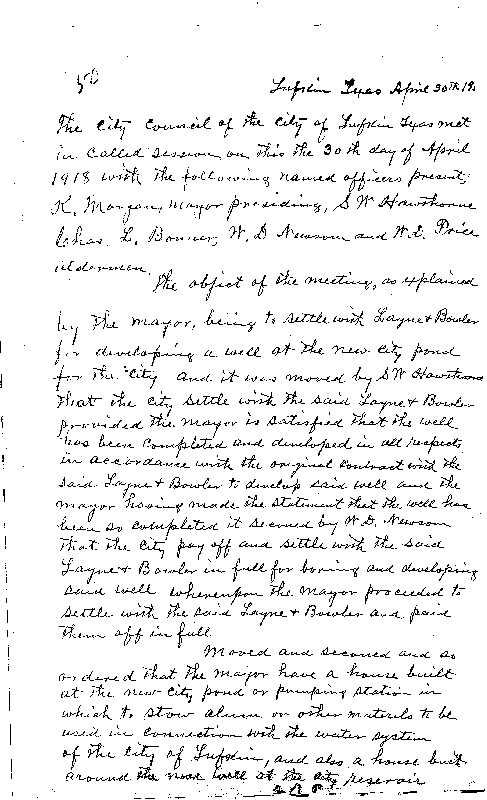 58
Lufkin Texas April 30th 19
The City Council of the City of Lufkin Texas met
in Called Session on this the 30th day of April
1918 with the following named officers present,
K. Morgan, Mayor presiding, S W Hawthorne
Chas. L. Bonner, W. D Newsom and W.E. Price
Aldermen.
The object of the meeting, as explained
by the mayor, being to settle with Layne & Bowler
for developing a well at the new city pond
for the City and it was moved by S W Hawthorne
that the city settle with the said Layne & Bowler
provided the Mayor is satisfied that the well
has been completed and developed in all respects
in accordance with the original contract with the
said Layne & Bowler to develop said well and the
mayor having made the statement that the well has
been so completed it seconed by W.D. Newsom
that the city pay off and settle with the said
Layne & Bowler in full for boring and developing
said well whereupon the mayor proceeded to
settle with the said Layne & Bowler and paid
them off in full.
Moved and seconed and so
ordered that the mayor have a house built
at the new city pond or pumping station in
which to stow alum or other materils to be
used in connection with the water system
of the City of Lufkin, and also a house built
around the new well at the city reservoir